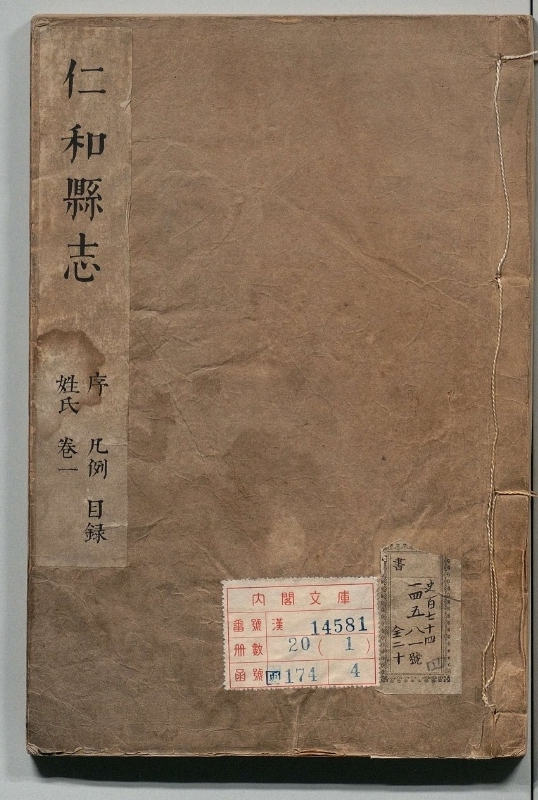 仁和縣志
序 凡例 目録
姓氏 卷一
内閣文庫
番號 漢 14581
冊數 20(1)
函號 174 4
書
史百七十四
一四五八一號
全二十